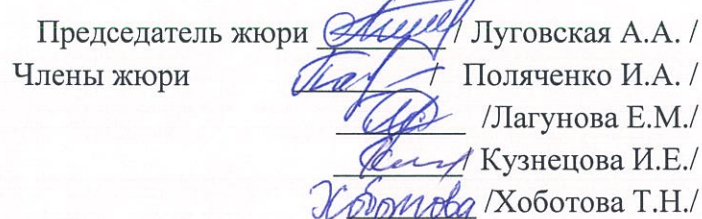 Председатель жюри / Луговская А.А. /
Члены жюри / Поляченко И.А. /
/Лагунова Е.М./
/ Кузнецова И.Е./
Хоботова /Хоботова Т.Н./